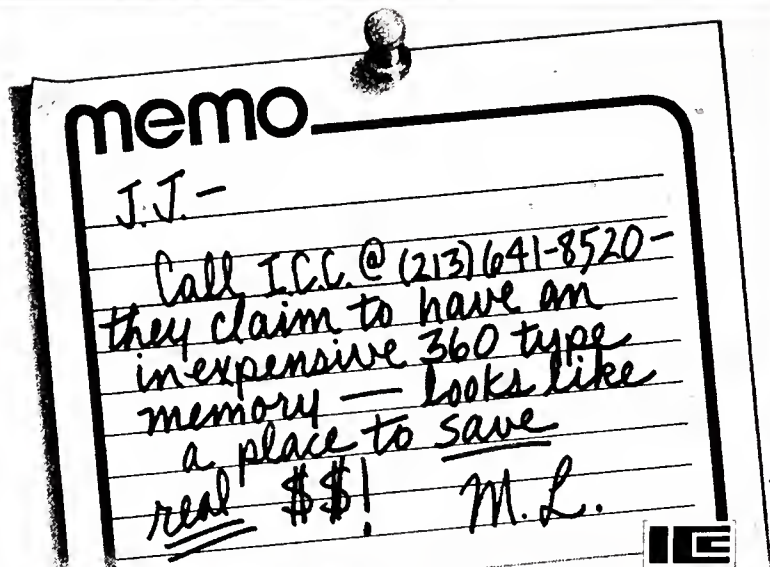 memo
J.J. -
Call I.C.C. @ (213) 641-8520 -
they claim to have an
inexpensive 360 type
memory — looks like
a place to save
real $$!  M.L.